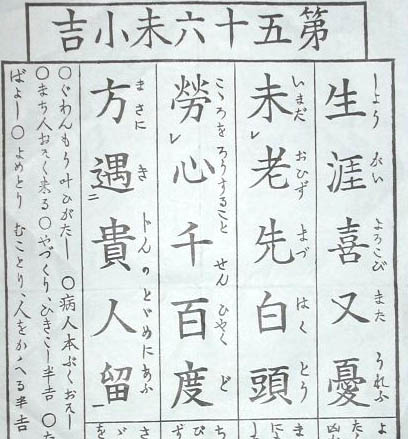 第五十六末小吉
生涯喜又憂
しよう がい よろこび また うれふ
未レ老先白頭
いまだ おひず まづ はく とう
勞レ心千百度
こゝろをろうすること せん ひやく ど
方遇二貴人留
まさに き じんのとゞめにあふ
○ぐわんもう叶ひがたし ○病人本ぷくおそし
○まち人おそく来る○やづくり、ひきこし半吉 ○た
ばよし○よめとり むことり、人をかゝへる半吉